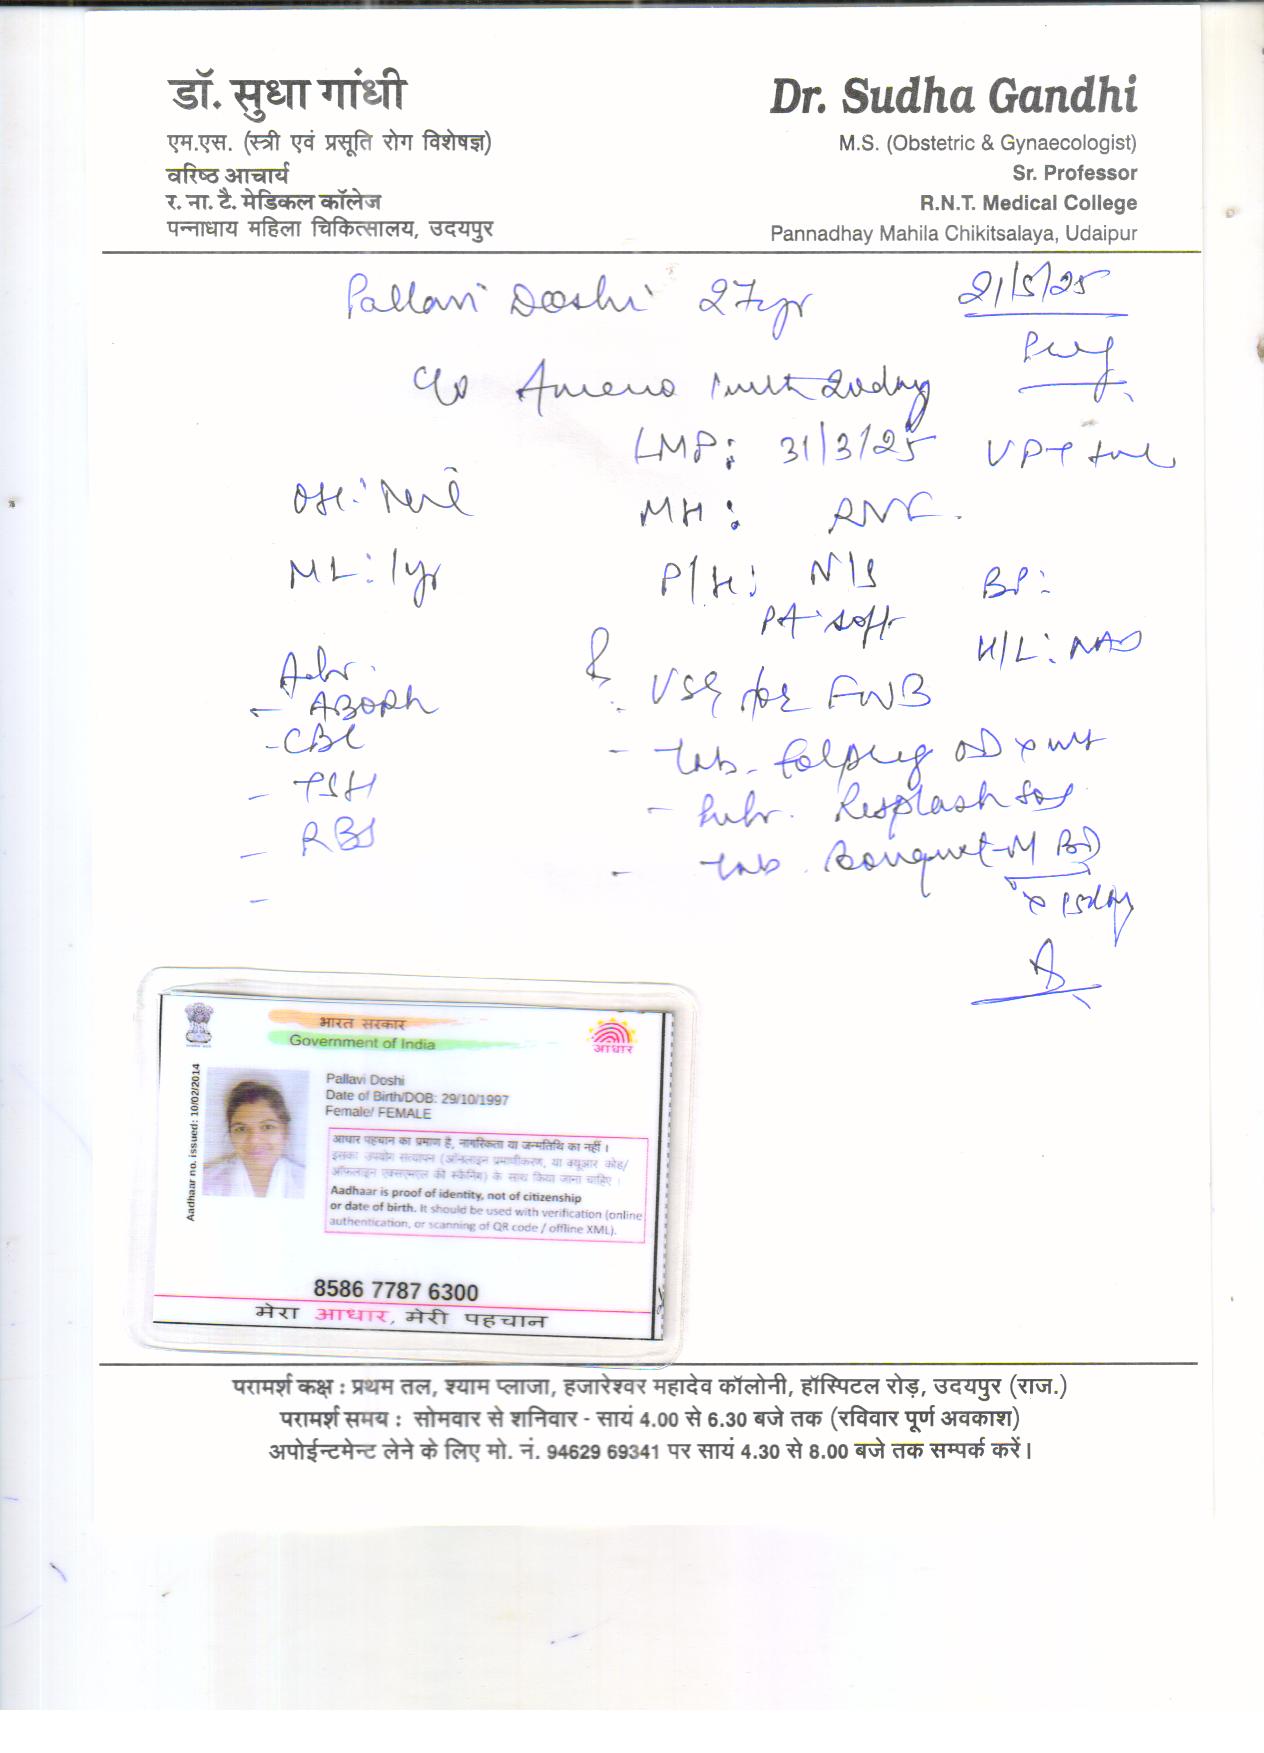 डॉ. सुधा गांधी
एम.एस. (स्त्री एवं प्रसूति रोग विशेषज्ञ)
वरिष्ठ आचार्य
र. ना. टै. मेडिकल कॉलेज
पन्नाधाय महिला चिकित्सालय, उदयपुर
Dr. Sudha Gandhi
M.S. (Obstetric & Gynaecologist)
Sr. Professor
R.N.T. Medical College
Pannadhay Mahila Chikitsalaya, Udaipur
Pallavi Doshi 27yr 21/5/25
c/o Ameno 20day
LMP: 31/3/25 VPT
OH: Nil MH: RMC.
ML: 1yr P/H: N/S BP:
PA: soft H/L: NAD
Adv.
- ABORh
- CBC
- TSH
- RBS
-
USG for FWB
- Tab. OD x
- Resplash sos
- Tab. Bonquet-M BD
x 15day
भारत सरकार
Government of India
आधार
Aadhaar no. issued: 10/02/2014
Pallavi Doshi
Date of Birth/DOB: 29/10/1997
Female/ FEMALE
आधार पहचान का प्रमाण है, नागरिकता या जन्मतिथि का नहीं ।
इसका उपयोग सत्यापन (ऑनलाइन प्रमाणीकरण, या क्यूआर कोड/
ऑफलाइन एक्सएमएल की स्कैनिंग) के साथ किया जाना चाहिए ।
Aadhaar is proof of identity, not of citizenship
or date of birth. It should be used with verification (online
authentication, or scanning of QR code / offline XML).
8586 7787 6300
मेरा आधार, मेरी पहचान
परामर्श कक्ष : प्रथम तल, श्याम प्लाजा, हजारेश्वर महादेव कॉलोनी, हॉस्पिटल रोड़, उदयपुर (राज.)
परामर्श समय : सोमवार से शनिवार - सायं 4.00 से 6.30 बजे तक (रविवार पूर्ण अवकाश)
अपोईन्टमेन्ट लेने के लिए मो. नं. 94629 69341 पर सायं 4.30 से 8.00 बजे तक सम्पर्क करें।